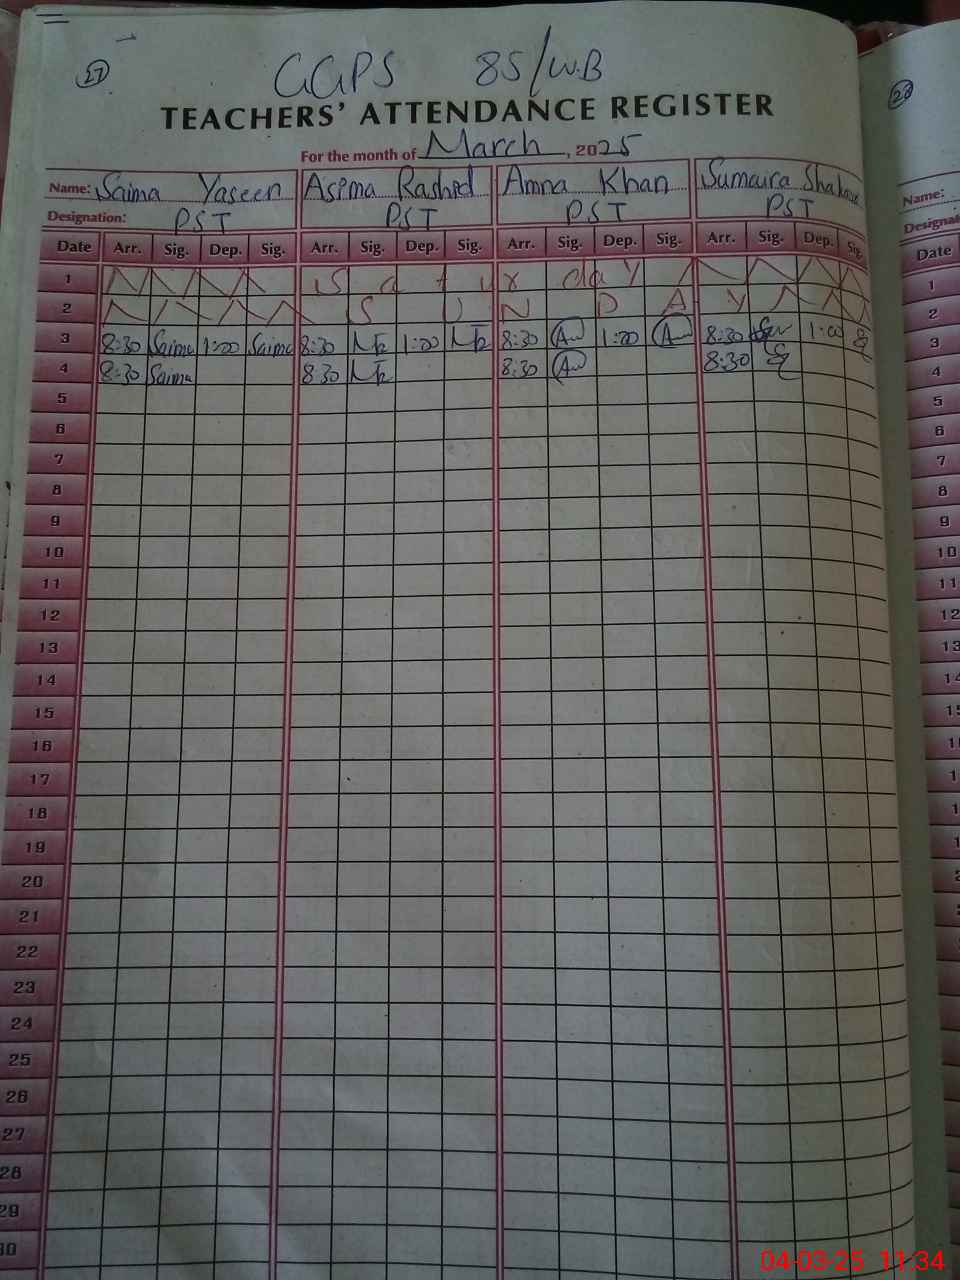 27
GGPS 85/W.B
TEACHERS' ATTENDANCE REGISTER
For the month of March, 2025
Name: Saima Yaseen Asima Rashid Amna Khan Sumaira
Designation: PST PST PST PST
Date Arr. Sig. Dep. Sig. Arr. Sig. Dep. Sig. Arr. Sig. Dep. Sig. Arr. Sig. Dep. Sig.
1 Saturday
2 SUNDAY
3 8:30 Saima 1:00 Saima 8:30 1:00 8:30 1:00 8:30 1:00
4 8:30 Saima 8:30 8:30 8:30
5
6
7
8
9
10
11
12
13
14
15
16
17
18
19
20
21
22
23
24
25
26
27
28
29
30
28
Name:
Date
1
2
3
4
5
6
7
8
9
10
11
12
13
04-03-25 11:34